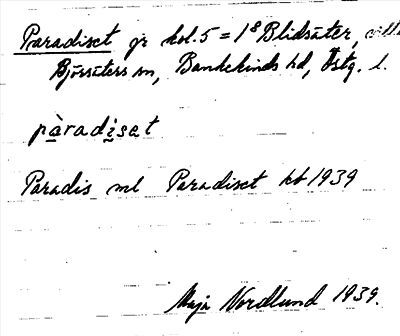 Paradiset gr kol. 5 = 1⁸ Blidsäter,
Björsäters sn, Bankekinds hd, Östg. l.
pàradi̱sa̱t
Paradis ml Paradiset kb 1939
Maja Nordlund 1939.